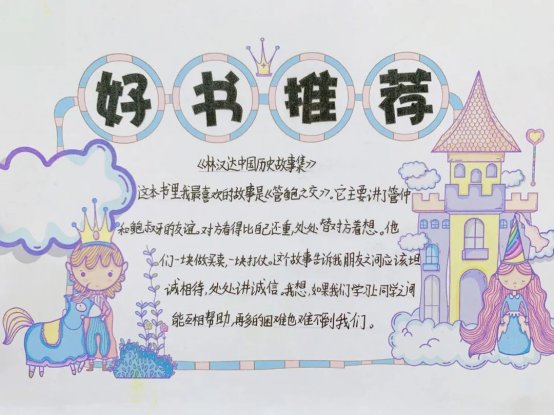 好书推荐
《林汉达中国历史故事集》
这本书里我最喜欢的故事是《管鲍之交》。它主要讲了管仲
和鲍叔牙的友谊。对方看得比自己还重,处处替对方着想。他
们一块做买卖,一块打仗。这个故事告诉我朋友之间应该坦
诚相待,处处讲诚信。我想,如果我们学习上同学之间
能互相帮助,再多的困难也难不倒我们。